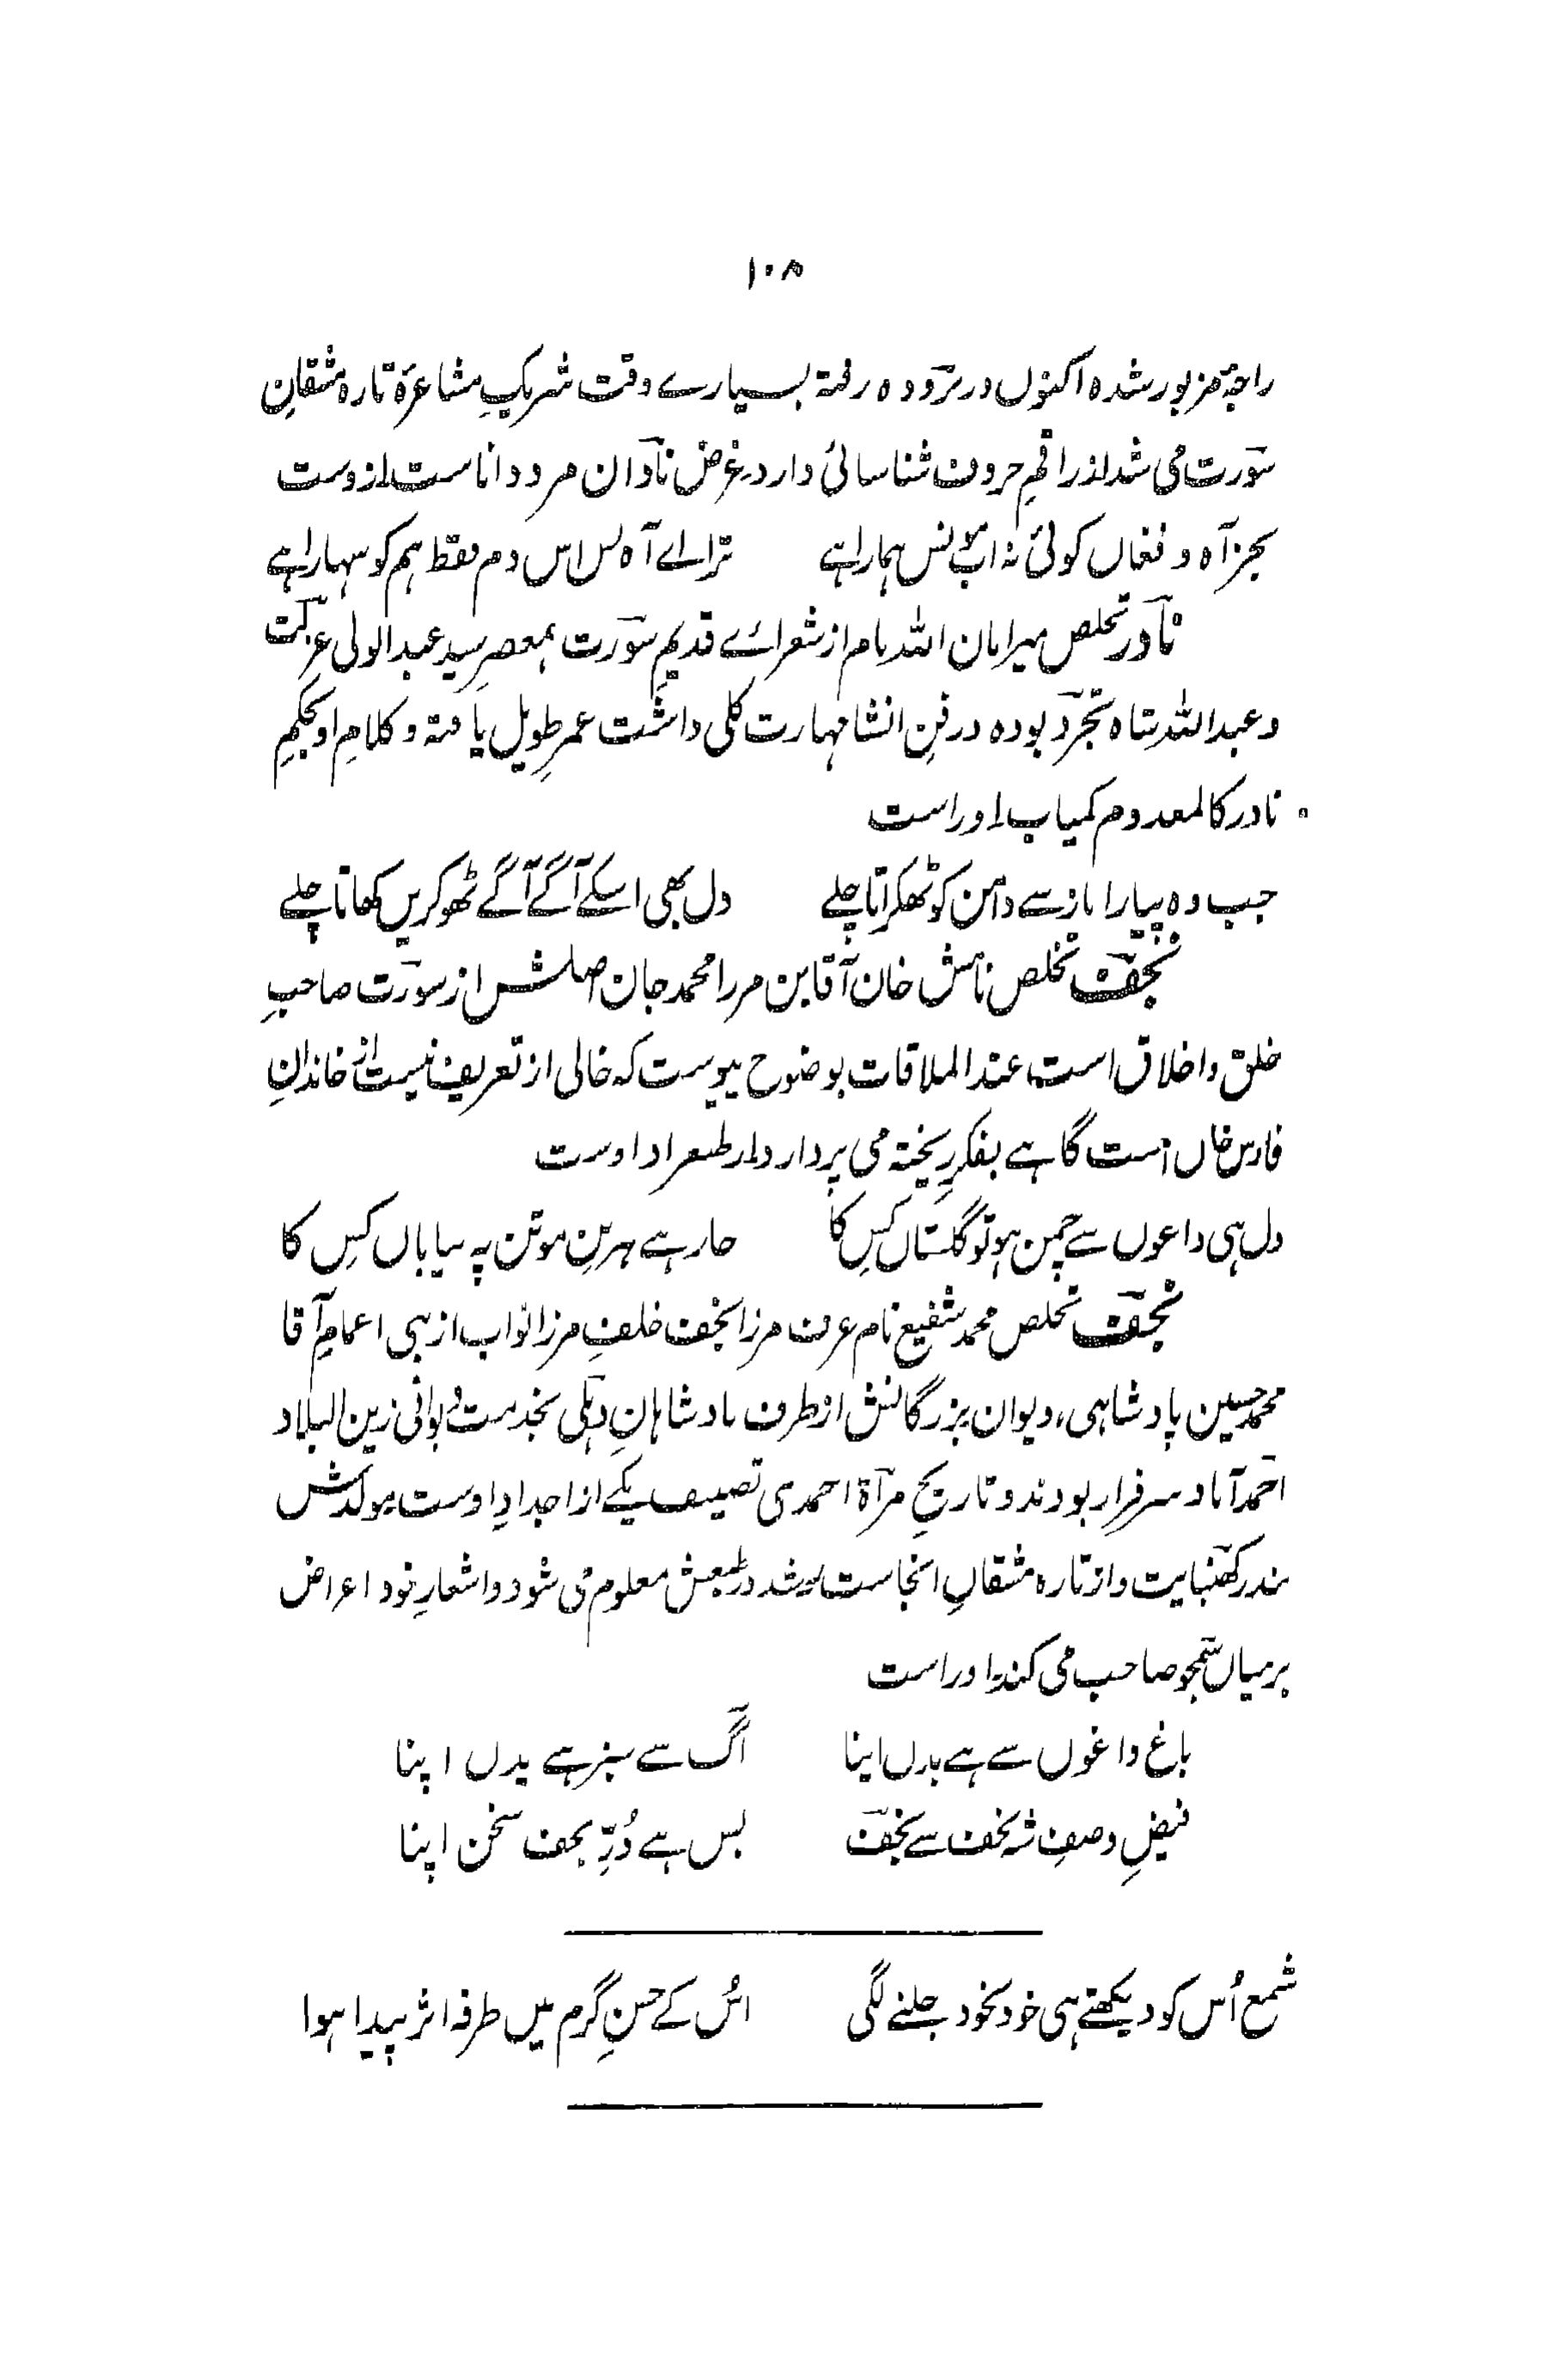 ۱۰۸
راجۂ مزبور شدہ اکنوں در برودہ رفتہ بسیارے وقت شریکِ مشاعرۂ تازہ مشقانِ
سورت می شد از راقمِ حروف شناسائی دارد غرض نادان مرد دانا ست از وست
بجز آہ و فغاں کوئی نہ اب مونس ہمارا ہے ترا اے آہ بس اس دم فقط ہم کو سہارا ہے
نادر تخلص میر امان اللہ نام از شعرائے قدیمِ سورت ہمعصرِ سید عبدالولی عزلت
و عبداللہ شاہ تجرد بودہ در فنِ انشا مہارت کلی داشت عمرِ طویل یافتہ و کلامِ او بحکمِ
نادر کالمعدوم کمیاب اوراست
جب وہ پیارا ناز سے دامن کو ٹھکراتا چلے دل بھی اسکے آگے آگے ٹھوکریں کھاتا چلے
نجف تخلص نامش خان آقا بن مرزا محمد جان اصلش از سورت صاحبِ
خلق و اخلاق است، عند الملاقات بوضوح پیوست کہ خالی از تعریف نیست از خاندانِ
فارس خاں است گاہے بفکرِ ریختہ می پردازد از طبعزاد اوست
دل ہی داغوں سے چمن ہو تو گلستاں کس کا خار ہے ہر بنِ مو تن پہ بیاباں کس کا
نجف تخلص محمد شفیع نام عرف مرزا نجف خلفِ مرزا نواب از بنی اعمامِ آقا
محمد حسین پادشاہی، دیوان بزرگانش از طرف بادشاہانِ دہلی بخدمت دیوانی زین البلاد
احمد آباد سرفراز بودند و تاریخِ مرآۃ احمدی تصنیف یکے از اجدادِ اوست مولدش
بندر کھنبایت و از تازہ مشقانِ آنجاست رشد در طبعش معلوم می شود و اشعارِ خود اعراض
بر میاں سمجو صاحب می کند اوراست
باغ داغوں سے ہے بدن اپنا آگ سے سبز ہے یہ دل اپنا
فیضِ وصفِ شہ نجف سے نجف بس ہے دُرِّ نجف سخن اپنا
شمع اُس کو دیکھتے ہی خود بخود جلنے لگی اُس کے حسنِ گرم میں طرفہ اثر پیدا ہوا